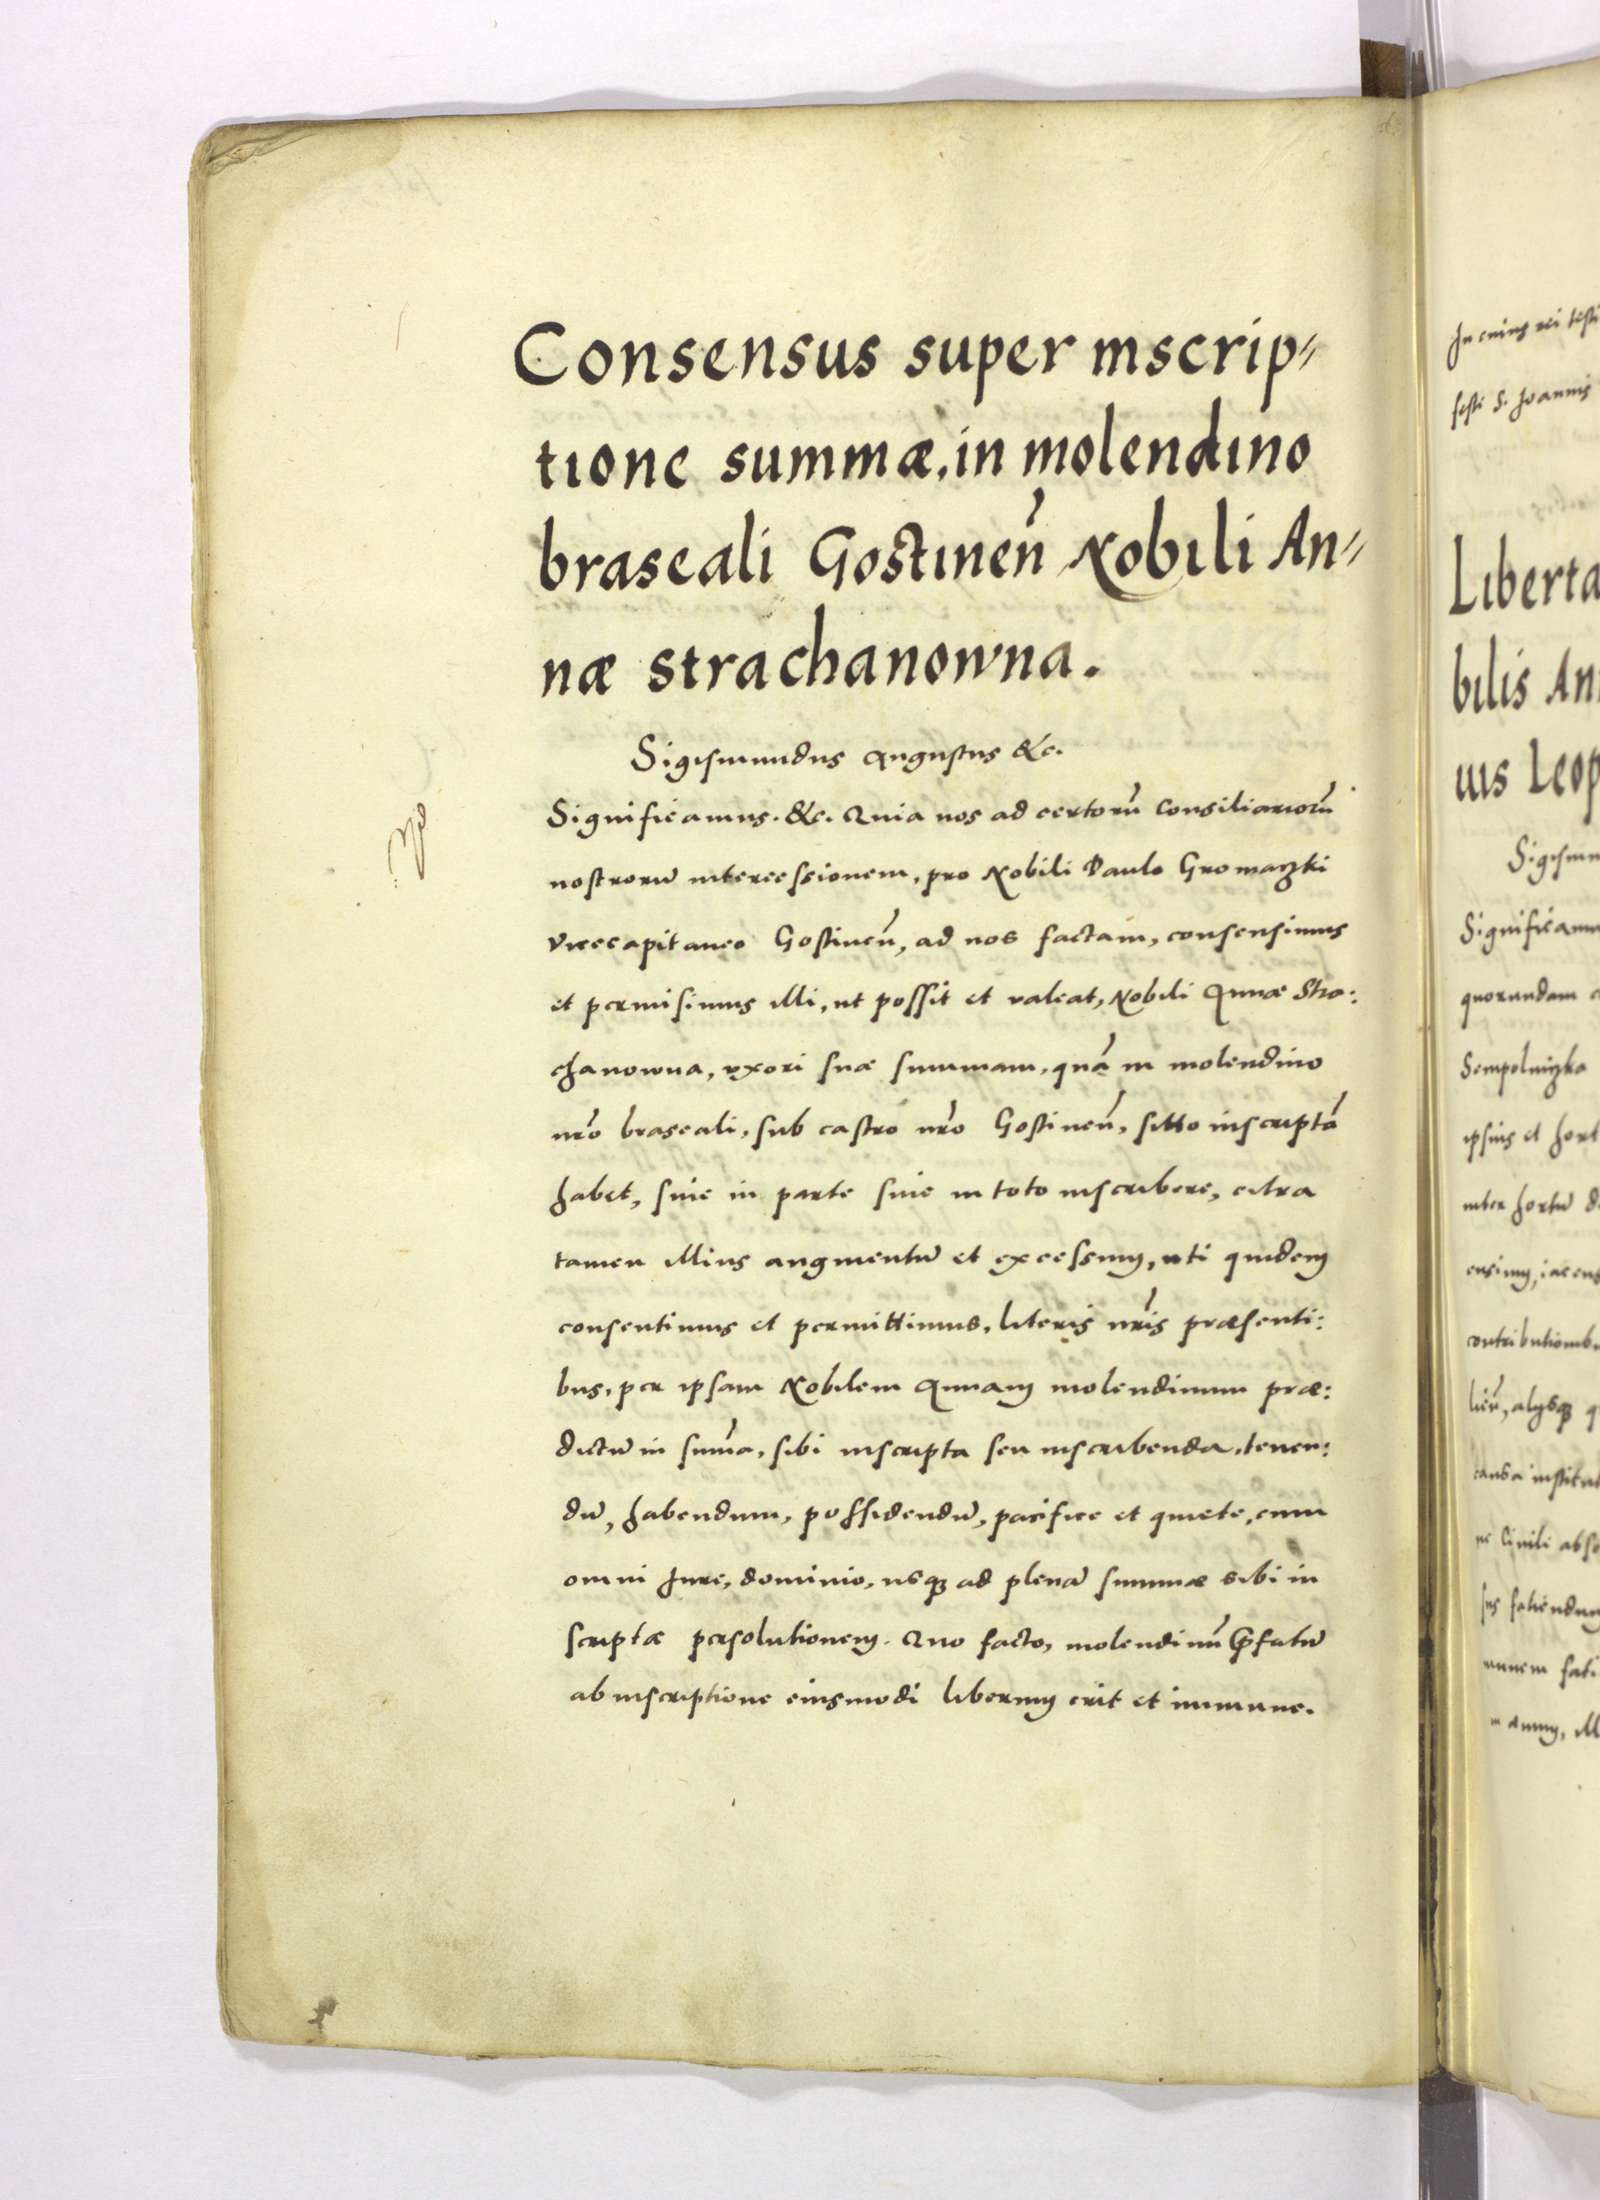 Consensus super inscrip=
tione summæ, in molendino
braseali Gostineñ Nobili An=
næ strachanowna.
Sigismundus Augustus &c.
Significamus. &c. Quia nos ad certorū Consiliariorū
nostrorū intercessionem, pro Nobili Paulo Gromaczki
Vicecapitaneo Gostineñ, ad nos factam, consensimus
et permisimus illi, ut possit et valeat, Nobili Annæ Stra:
chanowna, uxori suæ summam, quā in molendino
nrō braseali, sub castro nrō Gostineñ, sitto inscriptā
habet, siue in parte siue in toto inscribere, citra
tamen illius augmentū et excessum, uti quidem
consentimus et permittimus, literis nrīs præsenti:
bus, per ipsam Nobilem Annam molendinum præ:
dictū in sum̄a, sibi inscripta seu inscribenda, tenen:
dū, habendum, possidendū, pacifice et quiete, cum
omni Jure, dominio, usqꝫ ad plenā summæ sibi in
scriptæ persolutionem. Quo facto, molendinū p̄fatū
ab inscriptione eiusmodi liberum erit et immune.
In cuius rei testi
festi S. Joannis
Liberta
bilis An
uis Leop
Sigism
Significamu
quorundam
Sempelniczka
ipsius et hort
inter hortū d
ensimus, iacens
contributionibu
lień, alysqꝫ q
causa institut
ne Ciuili abso